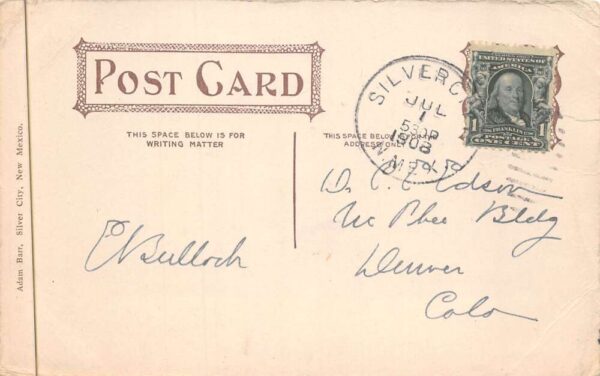 POST CARD
THIS SPACE BELOW IS FOR
WRITING MATTER
THIS SPACE BELOW
ADDRESS ONLY
SILVER C
JUL
1
530P
1908
N.MEX.
UNITED STATES OF
AMERICA
1 FRANKLIN 1
POSTAGE
ONE CENT
Dr. C. E. Edson
McPhee Bldg
Denver
Colo
E N Bulloch
Adam Barr, Silver City, New Mexico.